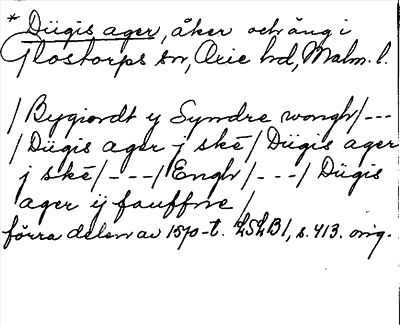 * Diigis ager, åker och äng i
Glostorps sn, Oxie hd, Malm. l.
/ Bygiordt y Syndre wongh /---
/ Diigis ager j ské / Diigis ager
j ské /---/ Engh /---/ Diigis
ager ij fauffne /
förra delen av 1570-t. LSLB1, s. 413. orig.